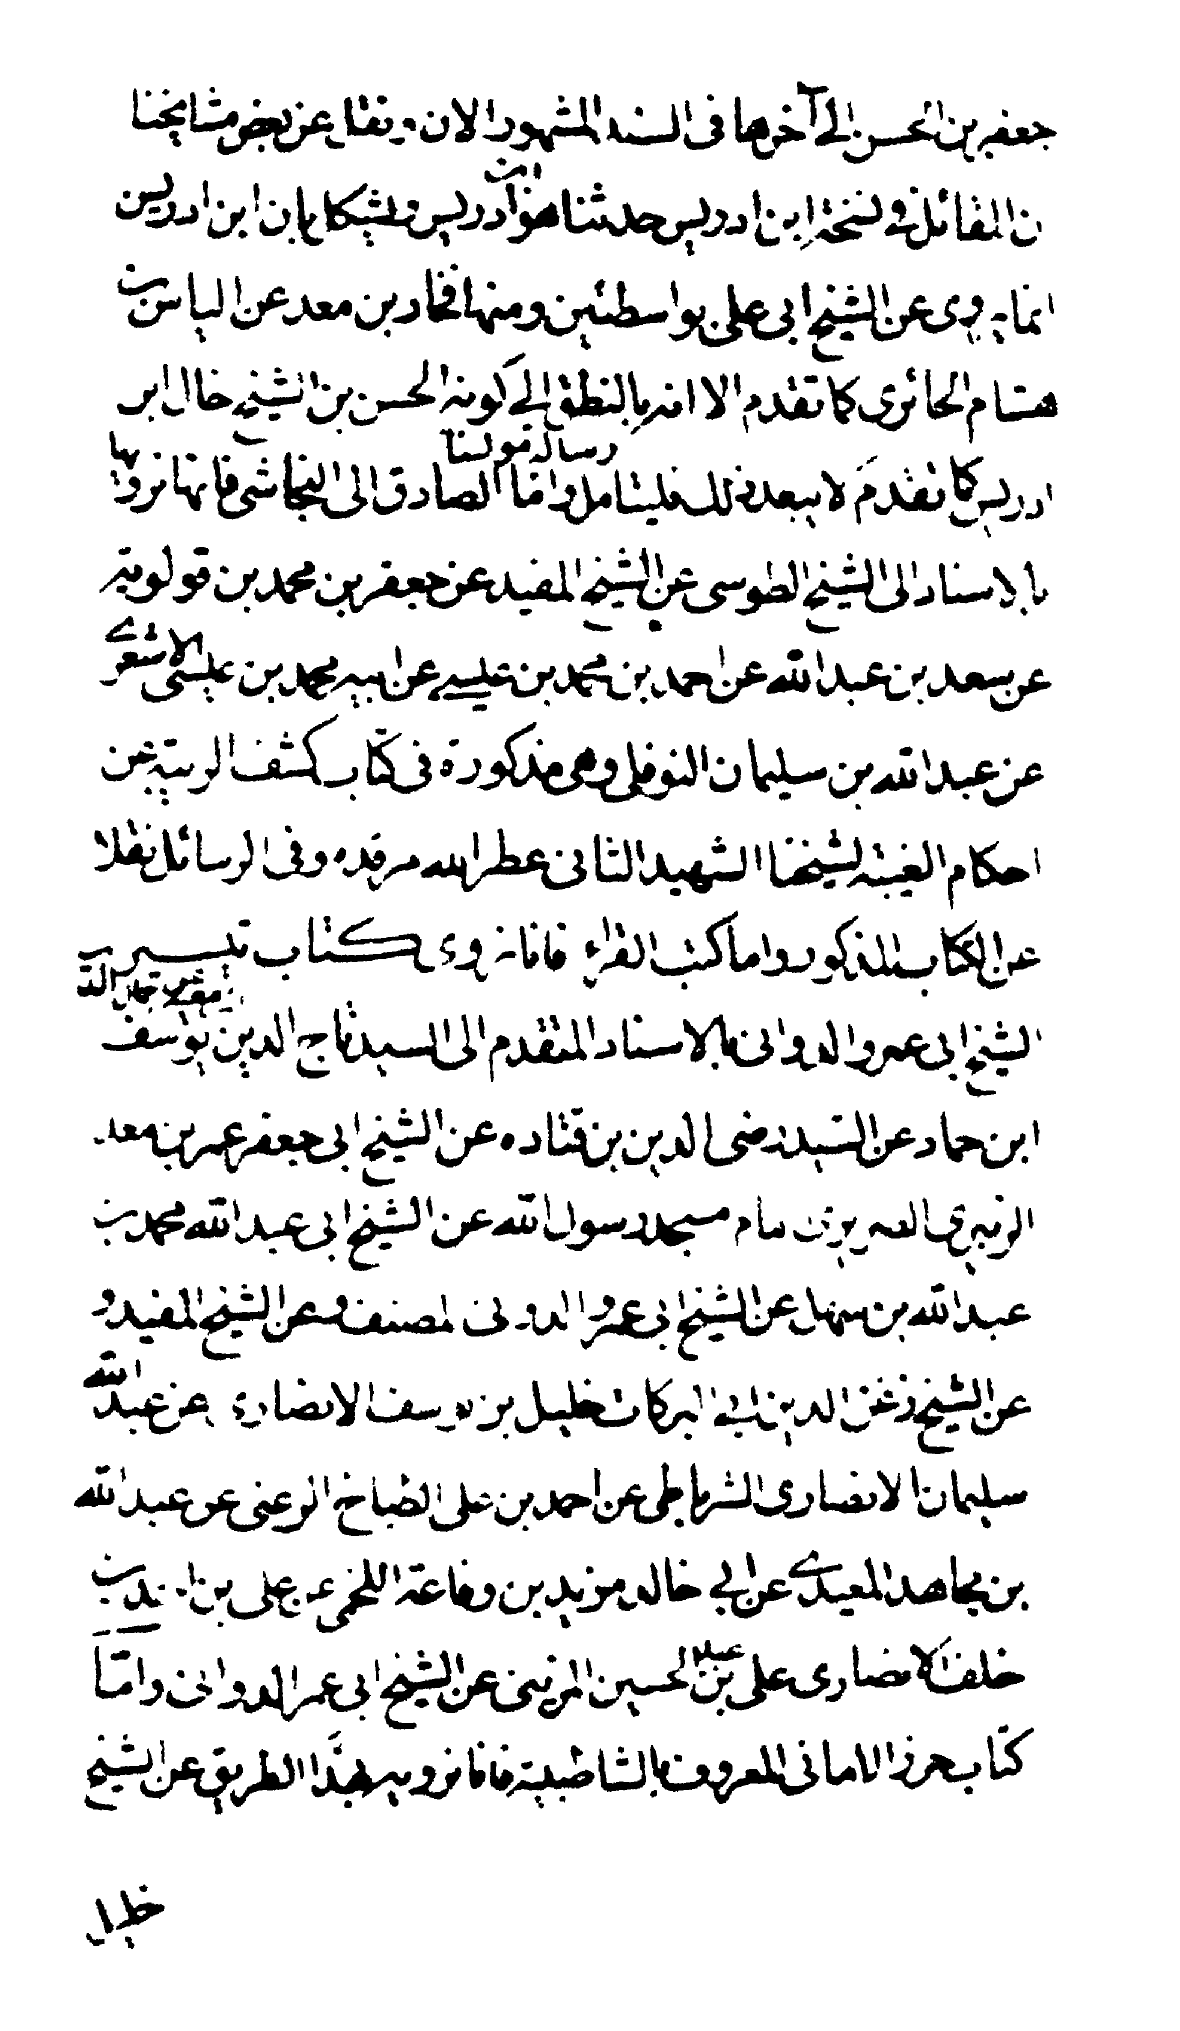 جعفر بن الحسن الى آخرها فى السند المشهور الان ونقل عن بعض مشايخنا
ن القائل فى نسخة ابن ادريس حدثنا هو ابن ادريس ويشكل بان ابن ادريس
انما يروى عن الشيخ ابى على بواسطتين ومنها فخار بن معد عن الياس بن
هشام الحائرى كما تقدم الا انه بالنظر الى كونه الحسن بن الشيخ خال ابن
ادريس كما تقدم لا يبعد ذلك فليتامل واما رسالة مولينا الصادق الى النجاشى فانا نرويها
بالاسناد الى الشيخ الطوسى عن الشيخ المفيد عن جعفر بن محمد بن قولويه
عن سعد بن عبد الله عن احمد بن محمد بن عيسى عن ابيه محمد بن عيسى الاشعرى
عن عبد الله بن سليمان النوفلى وهى مذكورة فى كتاب كشف الريبة عن
احكام الغيبة لشيخنا الشهيد الثانى عطر الله مرقده وفى الرسائل نقلا
عن الكتاب المذكور واما كتب القراء فانا نروى كتاب تيسير
الشيخ ابى عمرو الدوانى بالاسناد المتقدم الى السيد تاج الدين بن معية عن جمال الدين يوسف
ابن حماد عن السيد رضى الدين بن قتاده عن الشيخ ابى جعفر عمر بن معد
الزبيرى الضرير امام مسجد رسول الله عن الشيخ ابى عبد الله محمد بن
عبد الله بن سهل عن الشيخ ابى عمرو الدونى المصنف وعن الشيخ المفيد و
عن الشيخ زين الدين ابى البركات خليل بن يوسف الانصارى عن عبد الله
سليمان الانصارى الشرياطى عن احمد بن على الطباخ الرعنى عن عبد الله
بن مجاهد العبدى عن ابى خالد مزيد بن رفاعة اللخمى عن على بن احمد بن
خلف الانصارى على بن عبد الحسين المزينى عن الشيخ ابى عمر الدوانى واما
كتاب حرز الامانى المعروف بالشاطبية فانا نرويه بهذا الطريق عن الشيخ
خليل